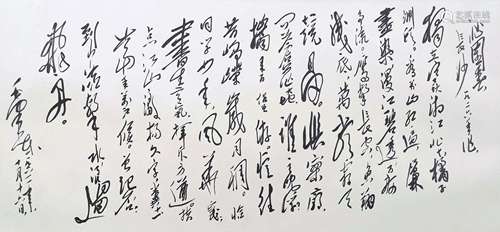 沁园春
长沙
独立寒秋湘江北去橘子
洲头看万山红遍层林
尽染漫江碧透百舸
争流鹰击长空鱼翔
浅底万类霜天
竞自由怅寥廓
问苍茫大地谁主沉浮
携来百侣曾游忆往
昔峥嵘岁月稠恰
同学少年风华正茂
书生意气挥斥方遒指
点江山激扬文字粪土
当年万户侯曾记否
到中流击水浪遏
飞舟。
毛泽东